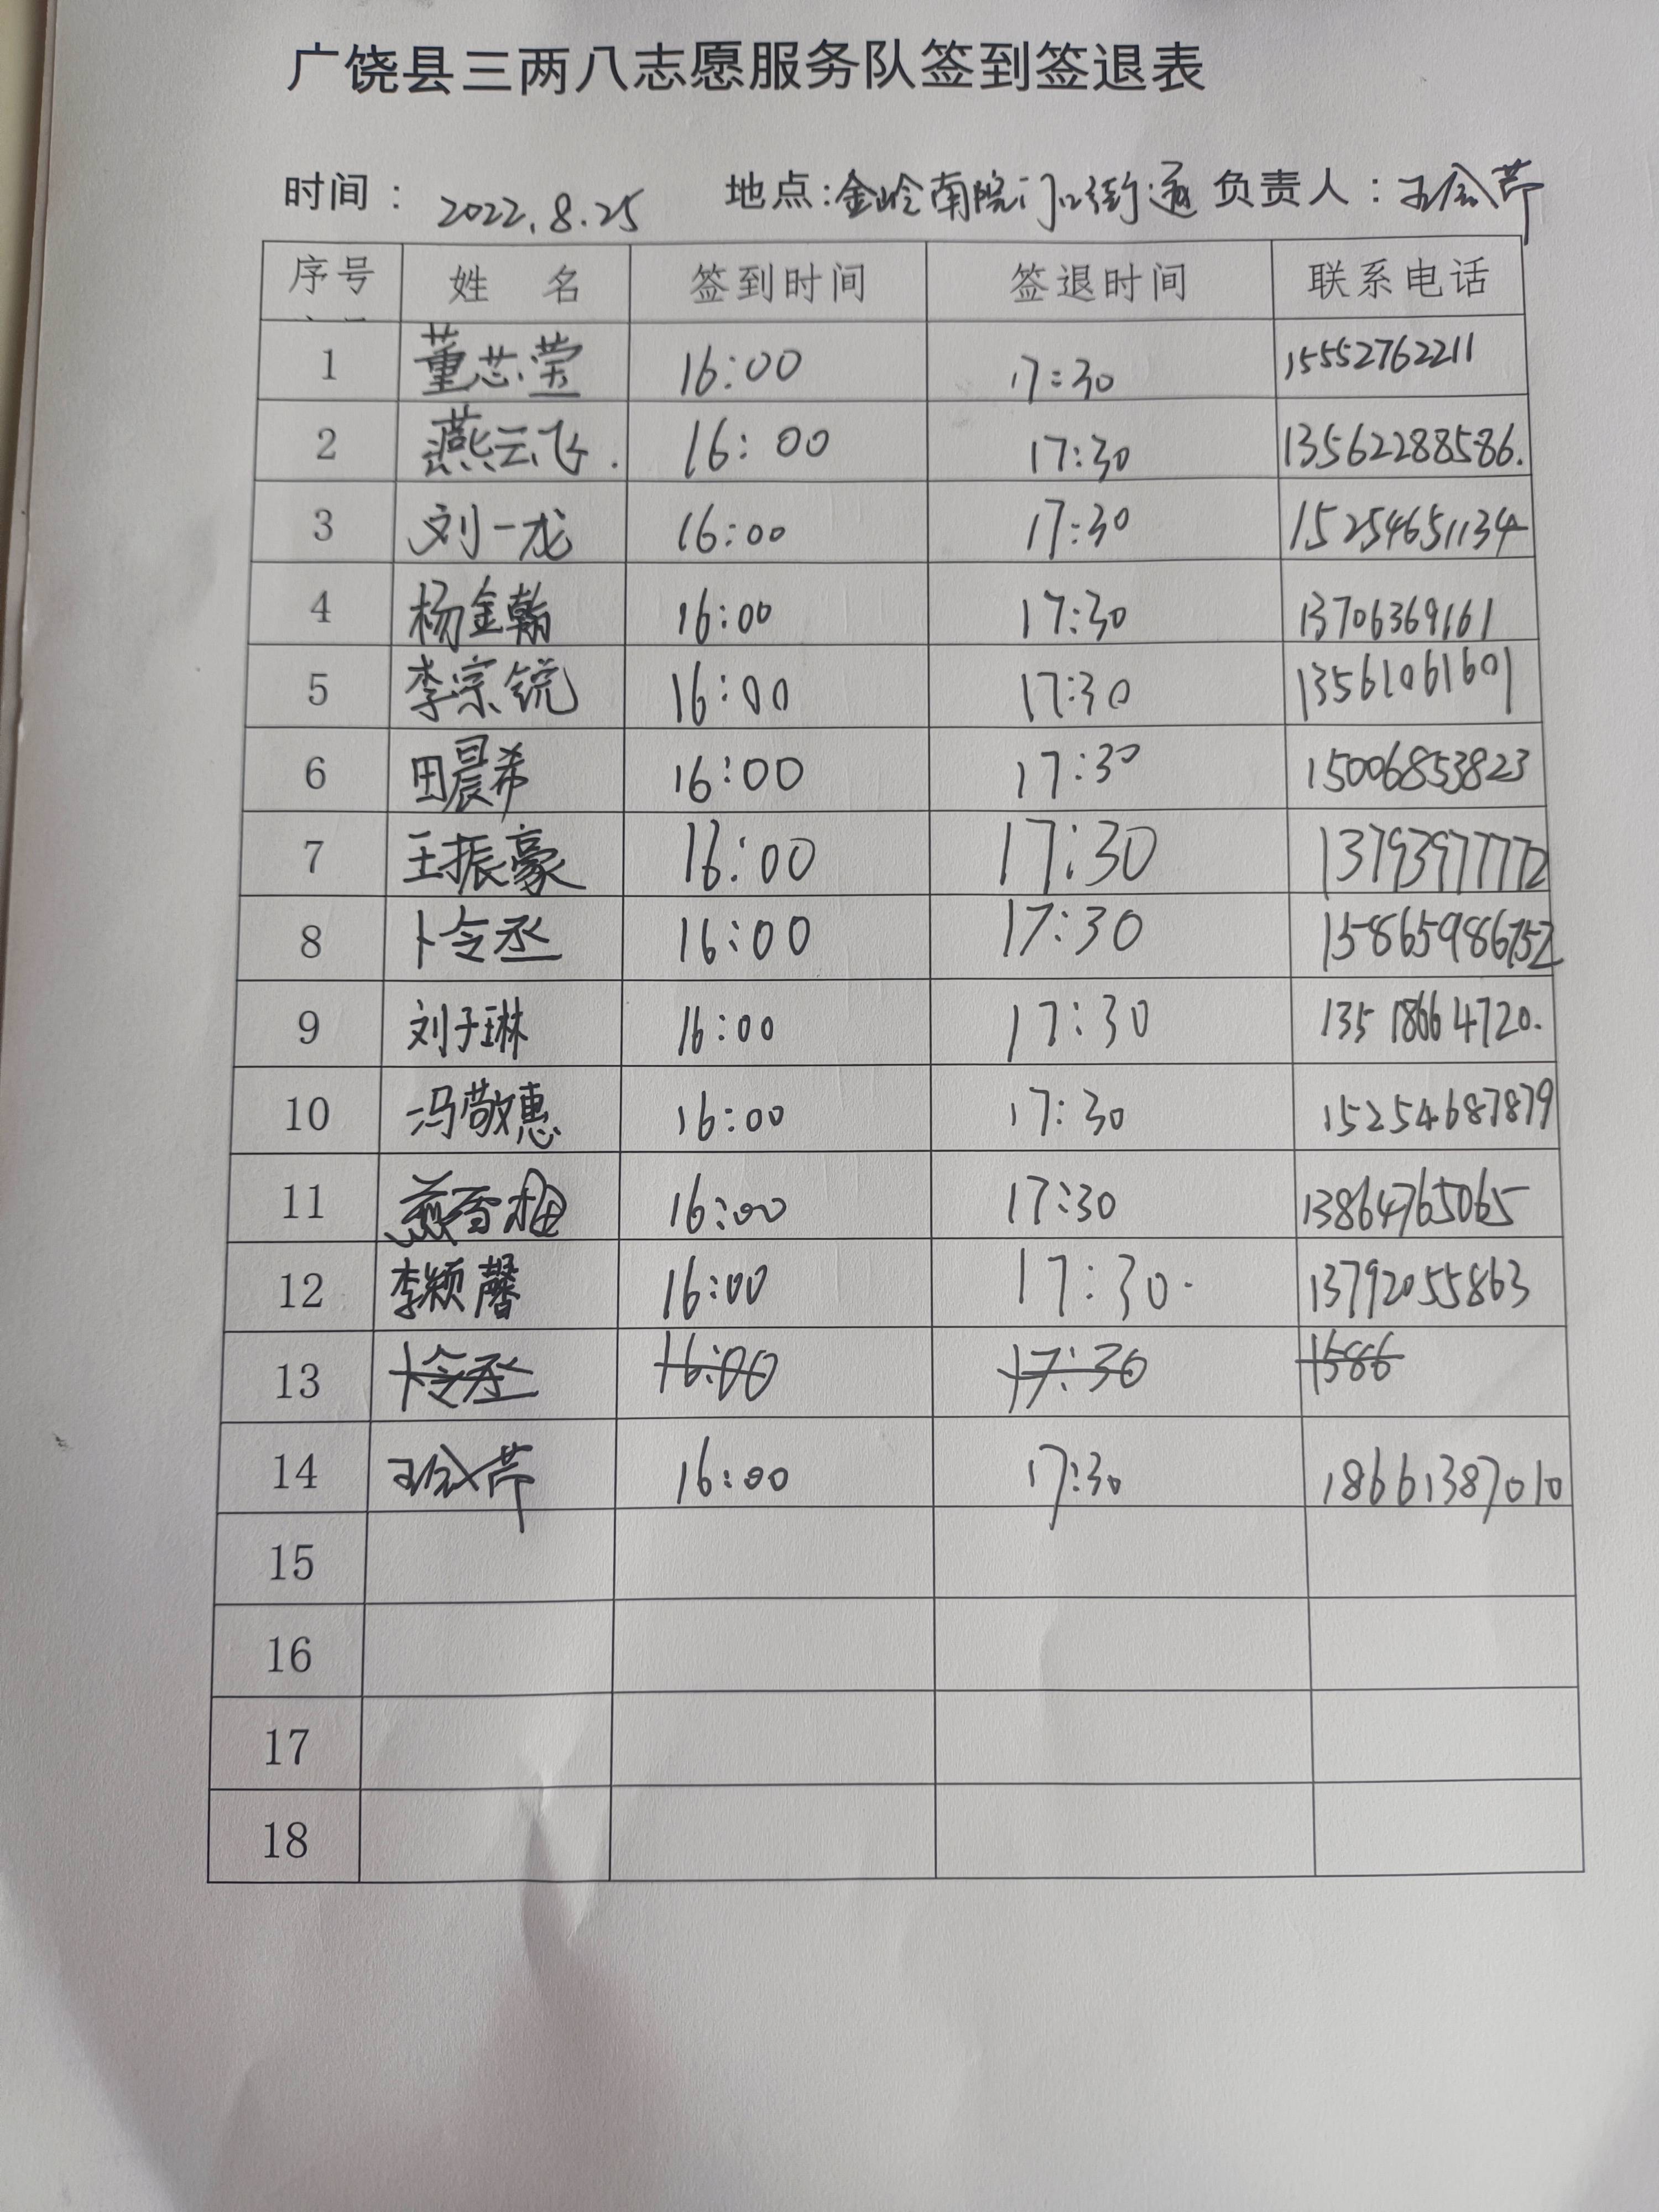 广饶县三两八志愿服务队签到签退表
时间： 2022.8.25 地点:金岭南院门口街道 负责人：
序号 姓 名 签到时间 签退时间 联系电话
1 董芯莹 16:00 17:30 15552762211
2 燕云飞. 16:00 17:30 13562288586.
3 刘一龙 16:00 17:30 15254651134
4 杨金翰 16:00 17:30 13706369161
5 李宗锐 16:00 17:30 13561061601
6 田晨希 16:00 17:30 15006853823
7 王振豪 16:00 17:30 13793977772
8 卜令丞 16:00 17:30
9 刘子琳 16:00 17:30 13518664720.
10 冯敬惠 16:00 17:30 15254687879
11 燕雪梅 16:00 17:30 13864765065
12 李颖馨 16:00 17:30. 13792055863
13 卜令丞 16:00 17:30 1586
14 16:00 17:30 18661387010
15
16
17
18